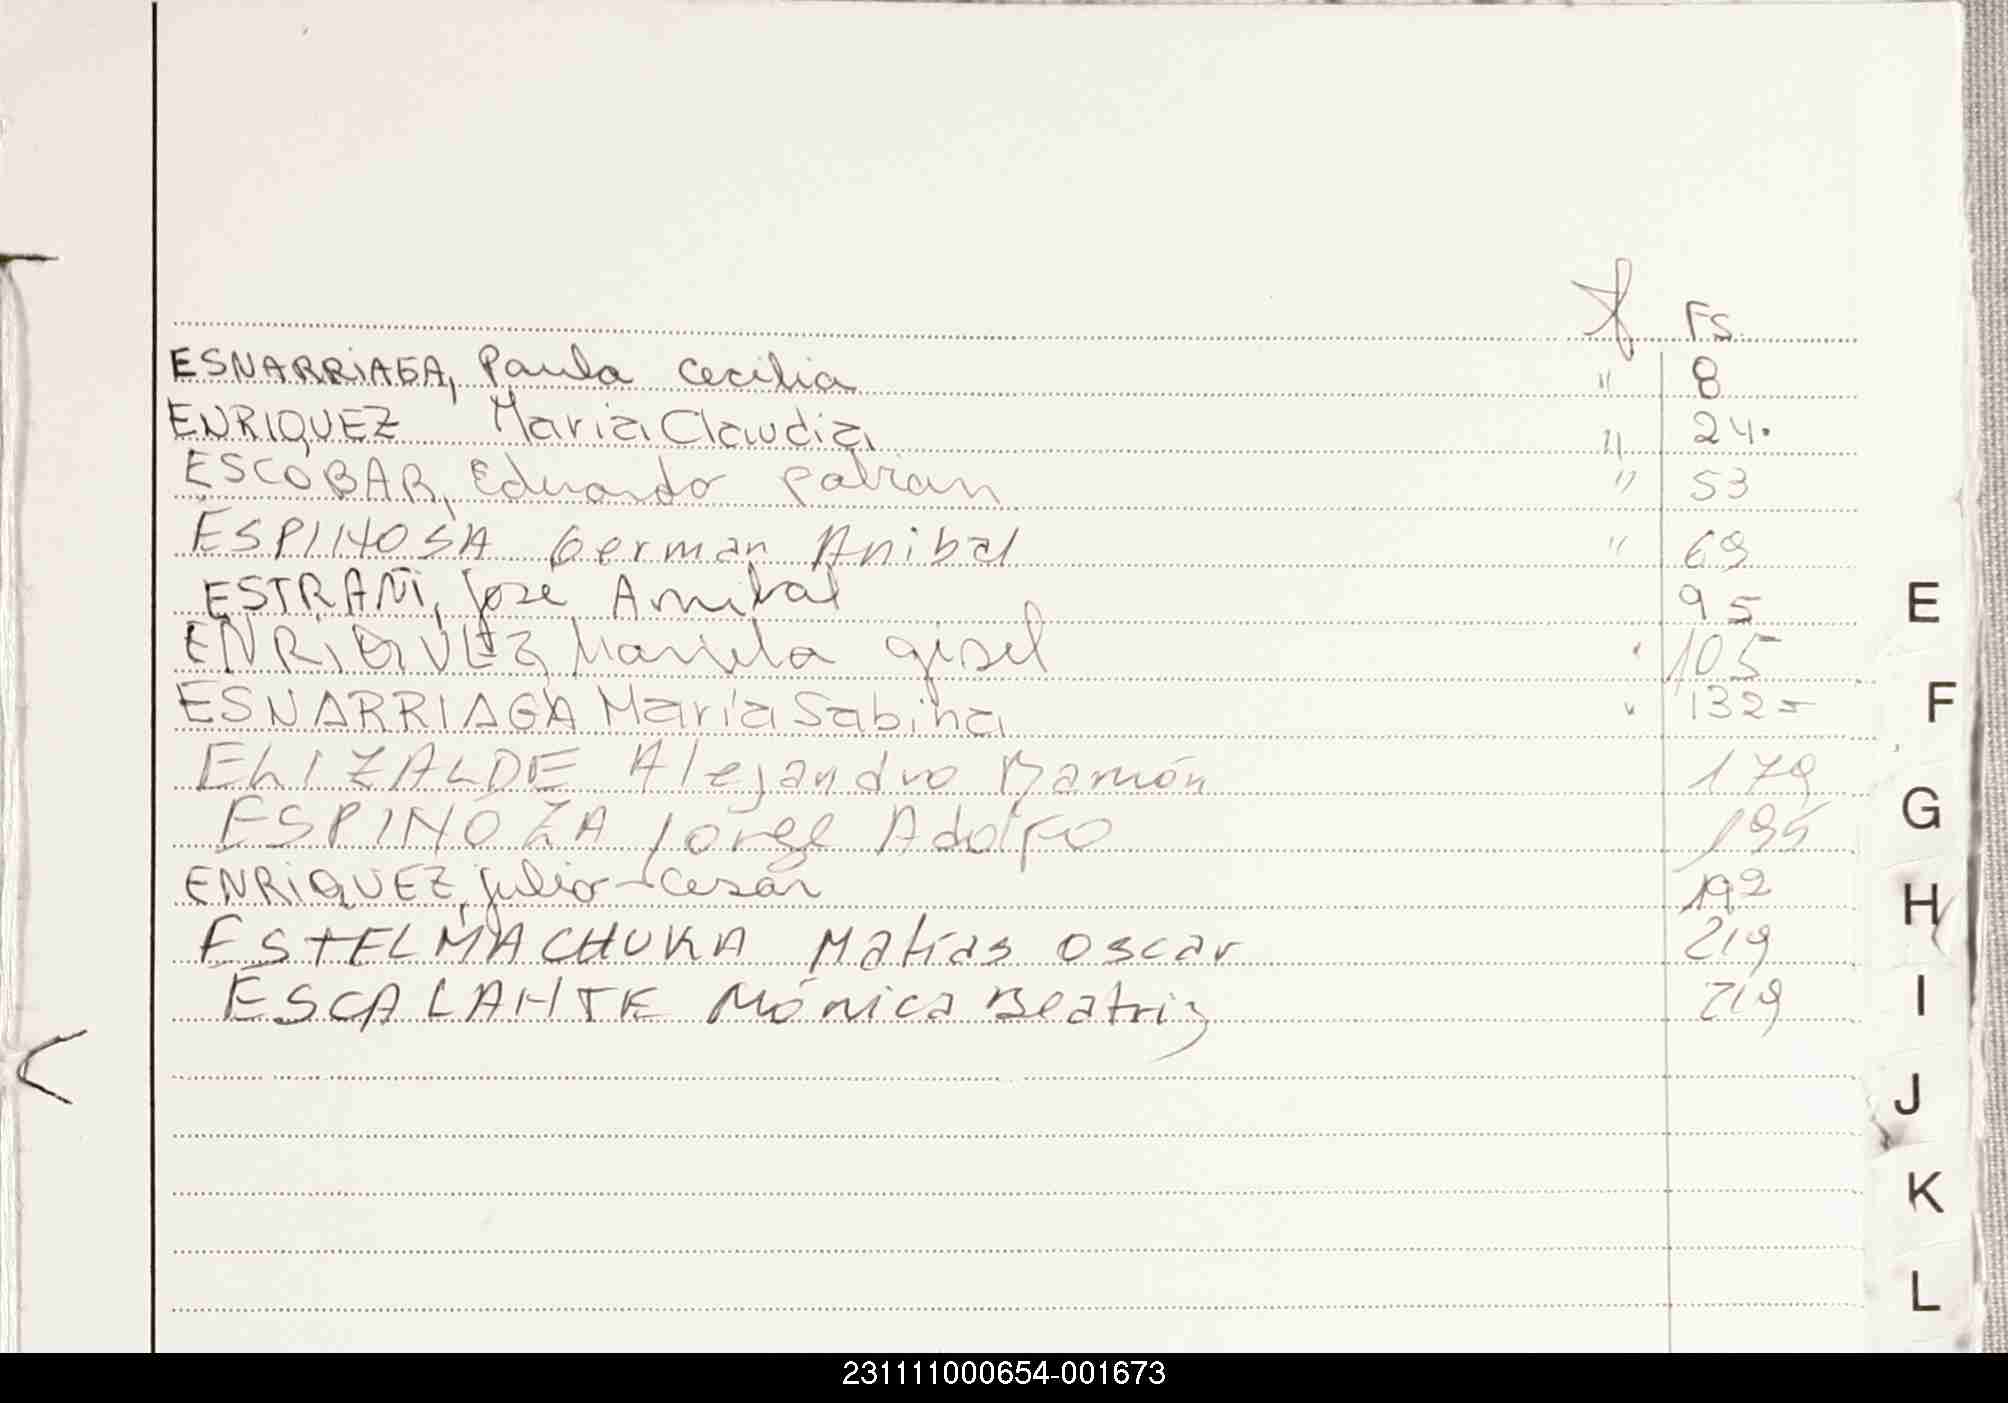 FS.
ESNARRIAGA, Paula Cecilia " 8
ENRIQUEZ Maria Claudia " 24.
ESCOBAR, Eduardo Fabian " 53
ESPINOSA German Anibal " 69
ESTRAÑI, Jose Annibal 95
ENRIQUEZ, Mariela gisel 105
ESNARRIAGA María Sabina " 132=
ELIZALDE Alejandro Ramón 179
ESPINOZA Jorge Adolfo 195
ENRIQUEZ, julio Cesar 192
ESTELMACHUKA Matías Oscar 219
ESCALANTE Mónica Beatriz 219
E
F
G
H
I
J
K
L
231111000654-001673